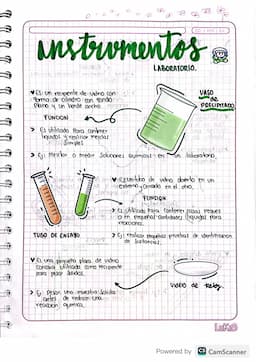 instrumentos
LABORATORIO.
♥ Es un recipiente de vidrio con
forma de cilindro con fondo
plano y un borde ancho.
VASO
DE
PRECIPITADO
FUNCION
> Es utilizado para contener
líquidos y realizar mezclas
simples.
> Ej: Mezclar o medir soluciones químicas en un laboratorio.
de vidrio abierto en un
extremo y cerrado en el otro.
FUNCION
> Es utilizado para contener
en pequeñas cantidades líquidas para
reacciones.
TUBO DE ENSAYO
> Ej: realizar pequeñas pruebas de identificación
de sustancias.
♥ Es una pequeña placa de vidrio
utilizada como recipiente
para pesar sólidos.
> Ej: Pesar una muestra sólida
antes de realizar una
reacción química.
VIDRIO DE Reloj.
Powered by CS CamScanner